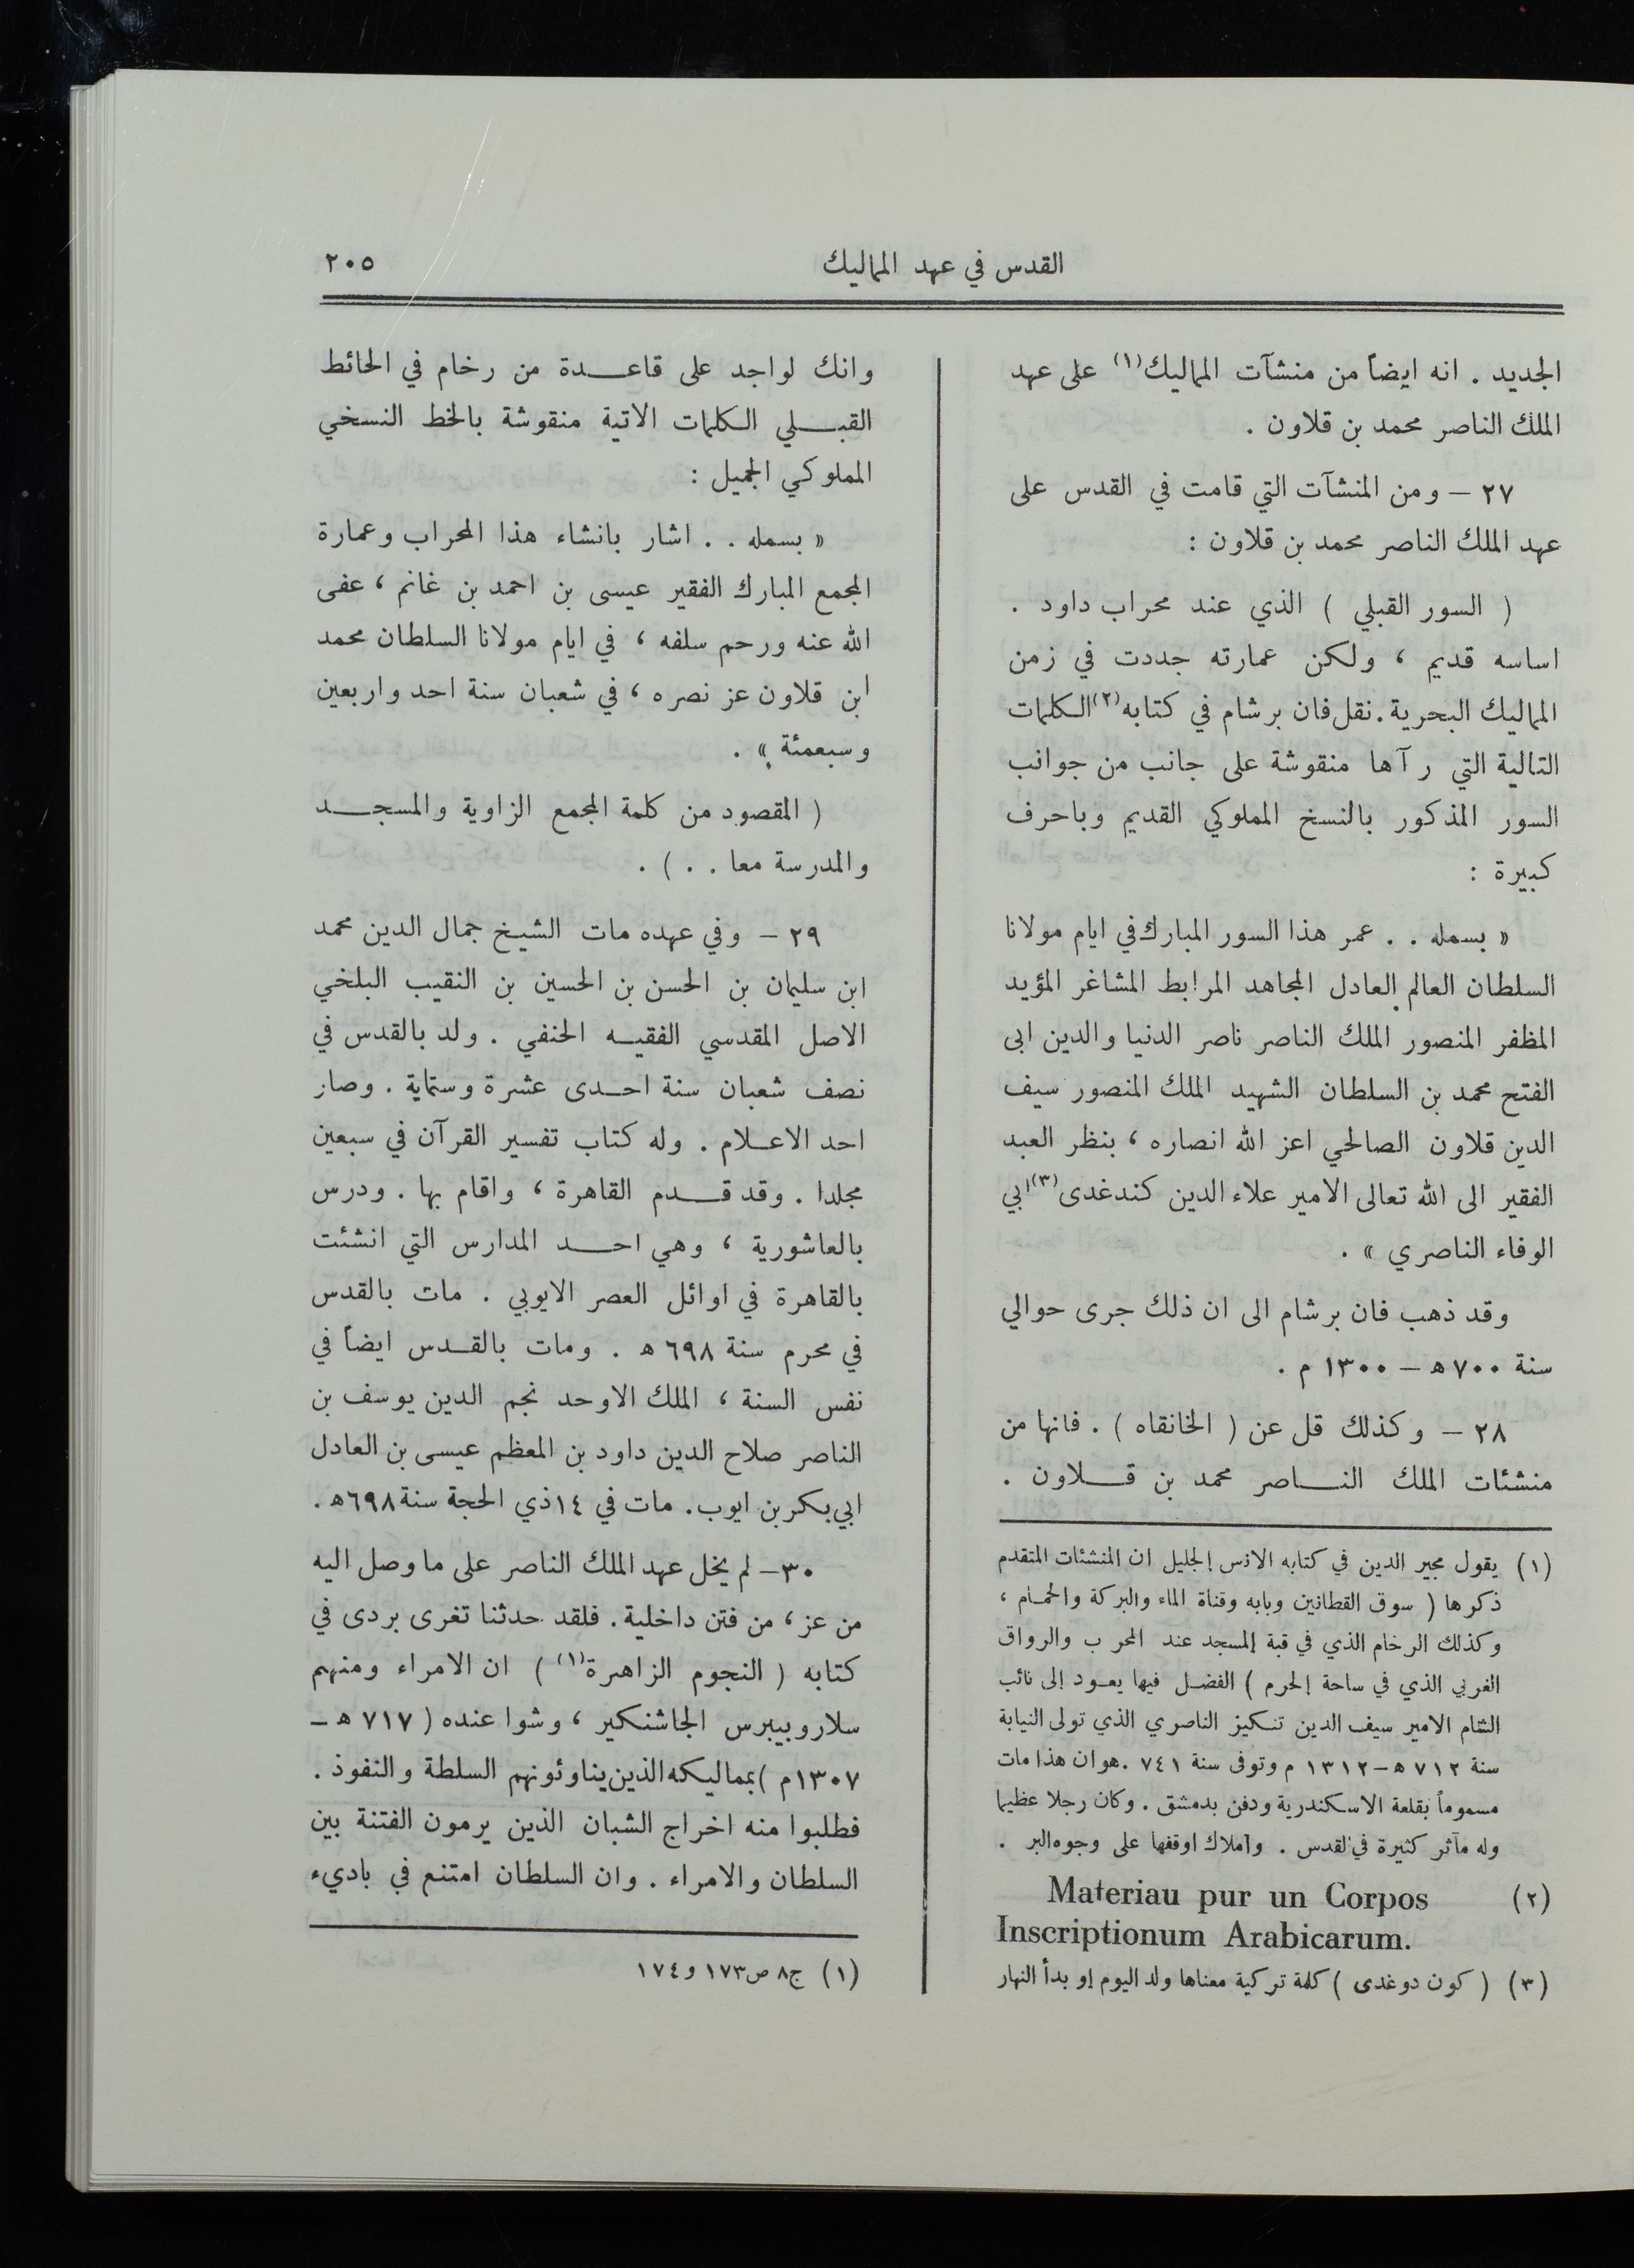 القدس في عهد المماليك
٢٠٥
الجديد . انه ايضاً من منشآت المماليك(١) على عهد
الملك الناصر محمد بن قلاون .
٢٧ – ومن المنشآت التي قامت في القدس على
عهد الملك الناصر محمد بن قلاون :
( السور القبلي ) الذي عند محراب داود .
اساسه قديم ، ولكن عمارته جددت في زمن
المماليك البحرية . نقل فان برشام في كتابه(٢) الكلمات
التالية التي رآها منقوشة على جانب من جوانب
السور المذكور بالنسخ المملوكي القديم وباحرف
كبيرة :
« بسمله . . عمر هذا السور المبارك في ايام مولانا
السلطان العالم العادل المجاهد المرابط المشاغر المؤيد
المظفر المنصور الملك الناصر ناصر الدنيا والدين ابى
الفتح محمد بن السلطان الشهيد الملك المنصور سيف
الدين قلاون الصالحي اعز الله انصاره ، بنظر العبد
الفقير الى الله تعالى الامير علاء الدين كندغدى(٣) ابي
الوفاء الناصري » .
وقد ذهب فان برشام الى ان ذلك جرى حوالي
سنة ٧٠٠ ه – ١٣٠٠ م .
٢٨ – وكذلك قل عن ( الخانقاه ) . فانها من
منشئات الملك الناصر محمد بن قلاون .
(١) يقول مجير الدين في كتابه الانس الجليل ان المنشئات المتقدم
ذكرها ( سوق القطانين وبابه وقناة الماء والبركة والحمام ،
وكذلك الرخام الذي في قبة المسجد عند المحر ب والرواق
الغربي الذي في ساحة الحرم ) الفضل فيها يعود إلى نائب
الشام الامير سيف الدين تنكيز الناصري الذي تولى النيابة
سنة ٧١٢ ه – ١٣١٢ م وتوفى سنة ٧٤١ . هو ان هذا مات
مسموماً بقلعة الاسكندرية ودفن بدمشق . وكان رجلا عظيما
وله مآثر كثيرة في القدس . وآملاك اوقفها على وجوه البر .
(٢) Materiau pur un Corpos
Inscriptionum Arabicarum.
(٣) ( كون دوغدى ) كلمة تركية معناها ولد اليوم او بدأ النهار
وانك لواجد على قاعدة من رخام في الحائط
القبلي الكلمات الاتية منقوشة بالخط النسخي
المملوكي الجميل :
« بسمله . . اشار بانشاء هذا المحراب وعمارة
المجمع المبارك الفقير عيسى بن احمد بن غانم ، عفى
الله عنه ورحم سلفه ، في ايام مولانا السلطان محمد
ابن قلاون عز نصره ، في شعبان سنة احد واربعين
وسبعمئة » .
( المقصود من كلمة المجمع الزاوية والمسجد
والمدرسة معا . . ) .
٢٩ – وفي عهده مات الشيخ جمال الدين محمد
ابن سليمان بن الحسن بن الحسين بن النقيب البلخي
الاصل المقدسي الفقيه الحنفي . ولد بالقدس في
نصف شعبان سنة احدى عشرة وستماية . وصار
احد الاعلام . وله كتاب تفسير القرآن في سبعين
مجلدا . وقد قدم القاهرة ، واقام بها . ودرس
بالعاشورية ، وهي احد المدارس التي انشئت
بالقاهرة في اوائل العصر الايوبي . مات بالقدس
في محرم سنة ٦٩٨ ه . ومات بالقدس ايضاً في
نفس السنة ، الملك الاوحد نجم الدين يوسف بن
الناصر صلاح الدين داود بن المعظم عيسى بن العادل
ابي بكر بن ايوب . مات في ١٤ ذي الحجة سنة ٦٩٨ ه .
٣٠ – لم يخل عهد الملك الناصر على ما وصل اليه
من عز ، من فتن داخلية . فلقد حدثنا تغرى بردى في
كتابه ( النجوم الزاهرة(١) ) ان الامراء ومنهم
سلار وبيبرس الجاشنكير ، وشوا عنده ( ٧١٧ ه –
١٣٠٧ م ) بمماليكه الذين يناوئونهم السلطة والنفوذ .
فطلبوا منه اخراج الشبان الذين يرمون الفتنة بين
السلطان والامراء . وان السلطان امتنع في باديء
(١) ج٨ ص ١٧٣ و ١٧٤